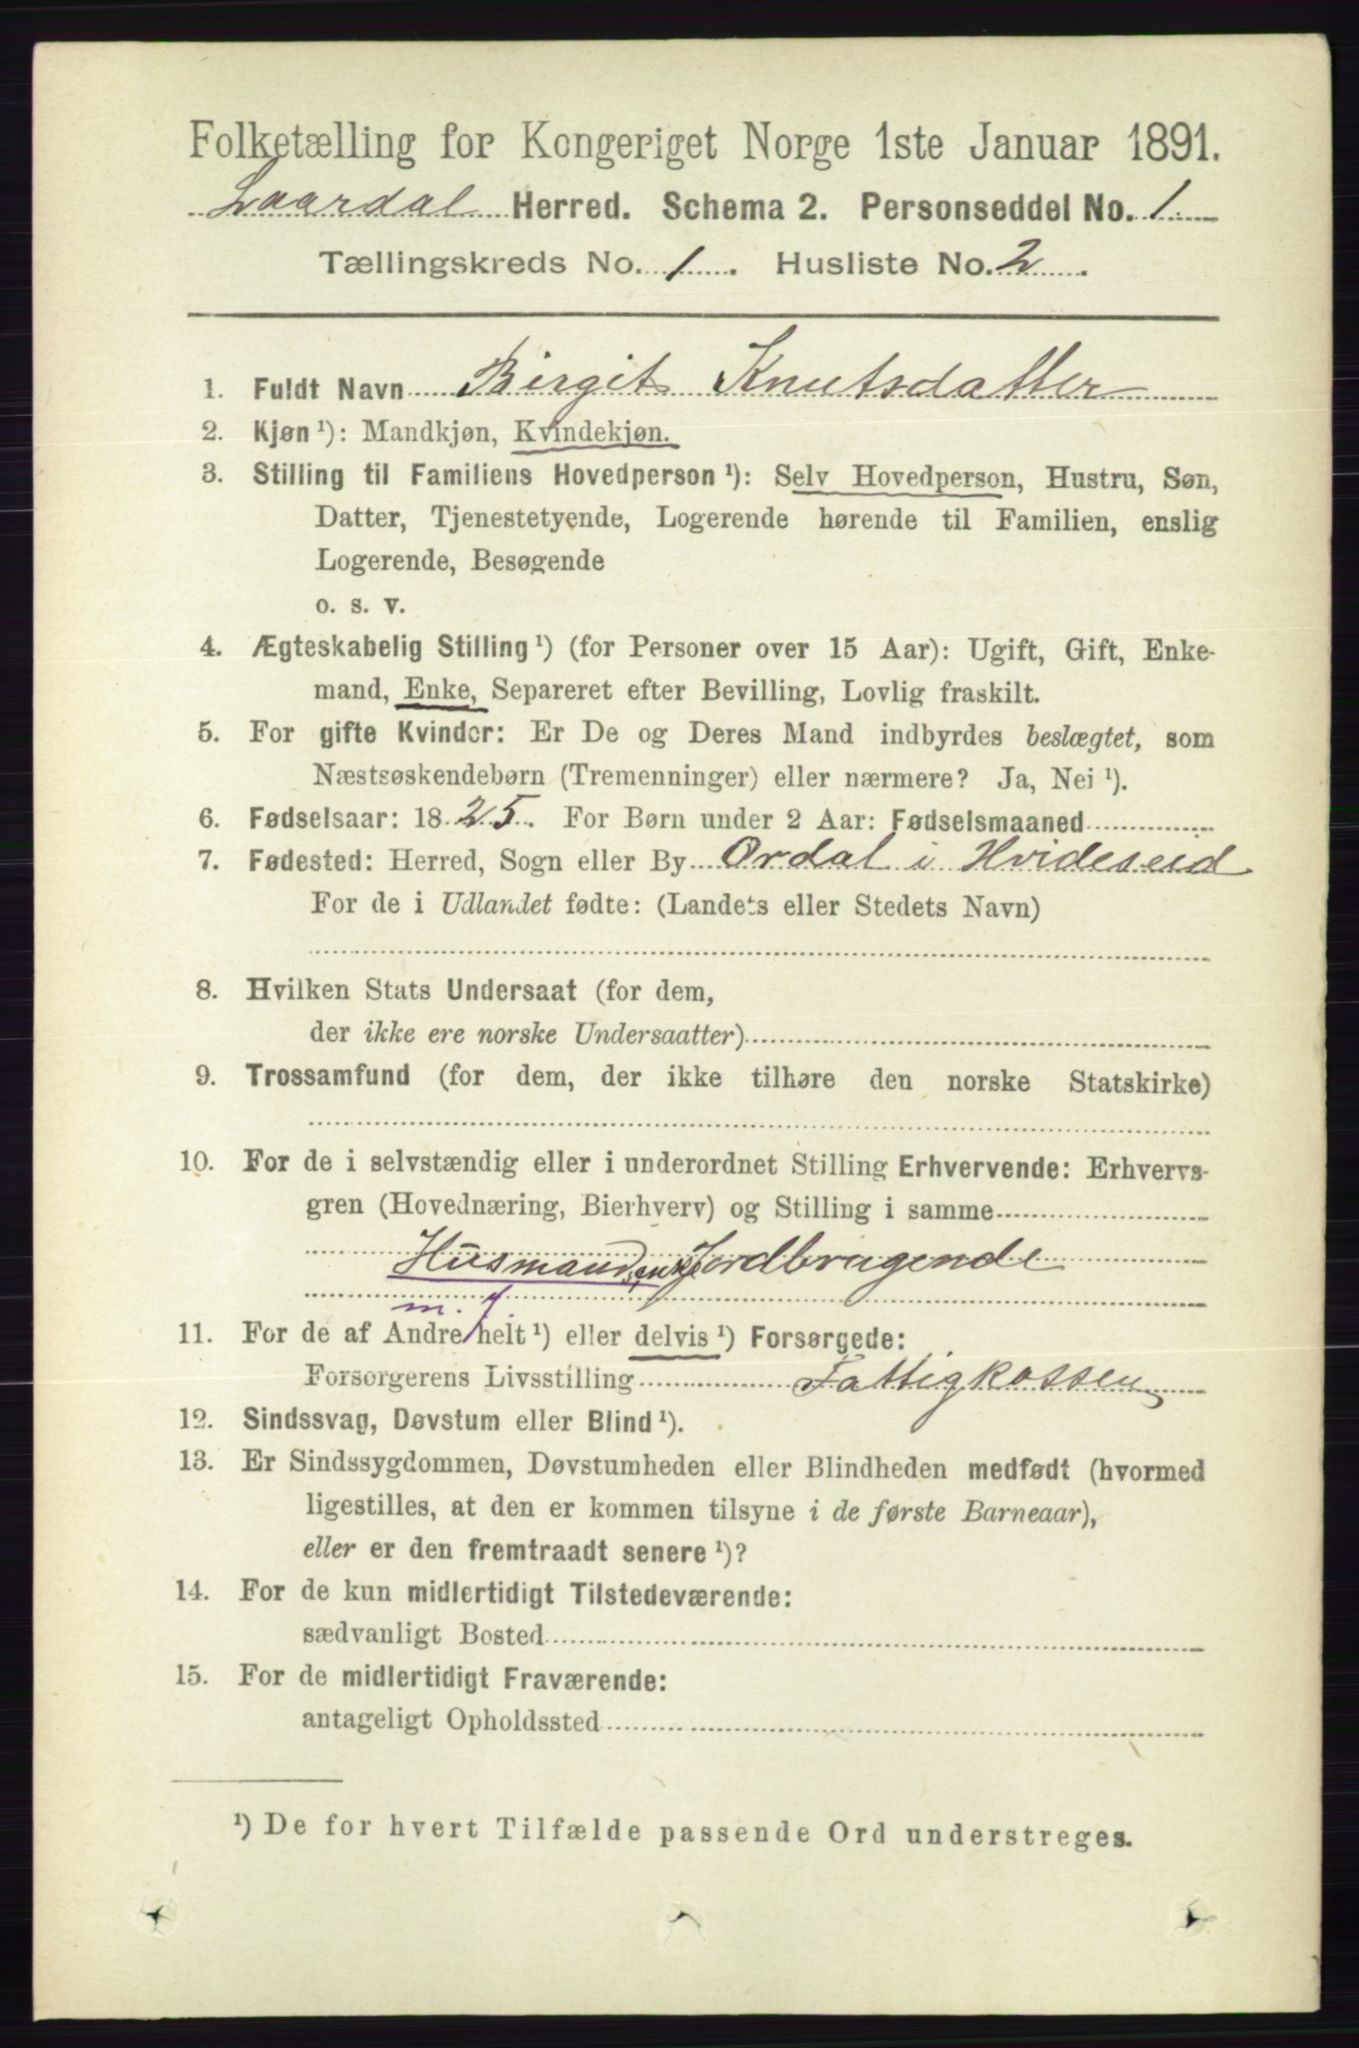 Folketælling for Kongeriget Norge 1ste Januar 1891.
Laardal Herred. Schema 2. Personseddel No. 1.
Tællingskreds No. 1. Husliste No. 2.
1. Fuldt Navn Birgit Knutsdatter
2. Kjøn ¹): Mandkjøn, Kvindekjøn.
3. Stilling til Familiens Hovedperson ¹): Selv Hovedperson, Hustru, Søn,
Datter, Tjenestetyende, Logerende hørende til Familien, enslig
Logerende, Besøgende
o. s. v.
4. Ægteskabelig Stilling ¹) (for Personer over 15 Aar): Ugift, Gift, Enke-
mand, Enke, Separeret efter Bevilling, Lovlig fraskilt.
5. For gifte Kvinder: Er De og Deres Mand indbyrdes beslægtet, som
Næstsøskendebørn (Tremenninger) eller nærmere? Ja, Nei ¹).
6. Fødselsaar: 1825. For Børn under 2 Aar: Fødselsmaaned
7. Fødested: Herred, Sogn eller By Ordal i Hvideseid
For de i Udlandet fødte: (Landets eller Stedets Navn)
8. Hvilken Stats Undersaat (for dem,
der ikke ere norske Undersaatter)
9. Trossamfund (for dem, der ikke tilhøre den norske Statskirke)
10. For de i selvstændig eller i underordnet Stilling Erhvervende: Erhvervs-
gren (Hovednæring, Bierhverv) og Stilling i samme
Husmandsenke Jordbrugende
m. J.
11. For de af Andre helt ¹) eller delvis ¹) Forsørgede:
Forsørgerens Livsstilling Fattigkassen
12. Sindssvag, Døvstum eller Blind ¹).
13. Er Sindssygdommen, Døvstumheden eller Blindheden medfødt (hvormed
ligestilles, at den er kommen tilsyne i de første Barneaar),
eller er den fremtraadt senere ¹)?
14. For de kun midlertidigt Tilstedeværende:
sædvanligt Bosted
15. For de midlertidigt Fraværende:
antageligt Opholdssted
¹) De for hvert Tilfælde passende Ord understreges.